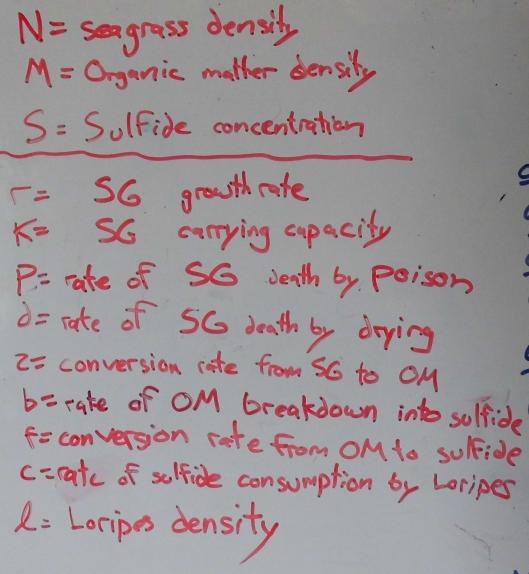 N= seagrass density
M= Organic matter density
S= Sulfide concentration
r= SG growth rate
K= SG carrying capacity
P= rate of SG death by poison
d= rate of SG death by drying
z= conversion rate from SG to OM
b= rate of OM breakdown into sulfide
f= conversion rate from OM to sulfide
c= rate of sulfide consumption by Loripes
l= Loripes density